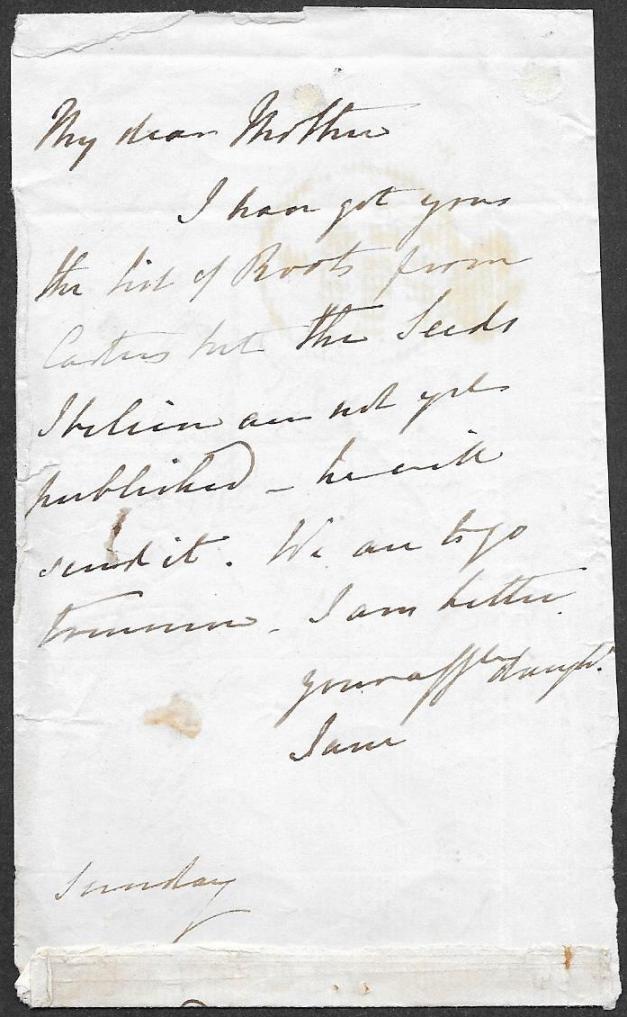 My dear Mother
I have got you
the list of Roots from
Carters but the Seeds
I believe are not yet
published - he will
send it. We are to go
tomorrow - I am better.
your affte daught.
Jane
Sunday